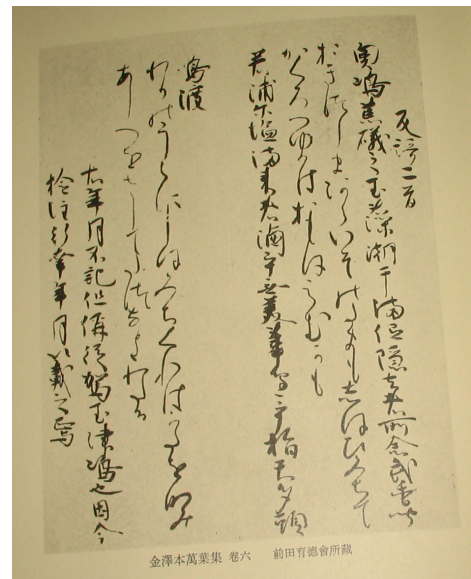 反謌二首
奥嶋荒礒之玉藻潮干満伊隠去者所念武香聞
おきつしまあらいそのたまもしほひみちて
かくろひゆかはおもほえむかも
若浦尓塩満来者滷乎無美葦邊乎指天多頭
鳴渡
わかのうらにしほみちくれはかたをなみ
あしへをさしてたつなきわたる
右年月不記但偁従駕玉津嶋也因今
檢注行幸年月以載之焉
金澤本萬葉集 卷六　前田育德會所藏